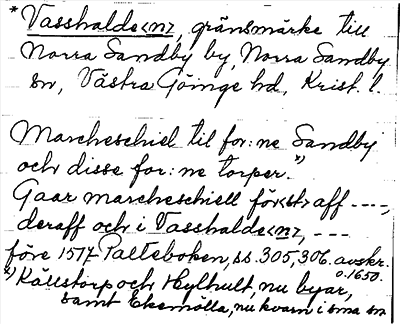 *Vasshalde<n>, gränsmärke till
Norra Sandby by, Norra Sandby
sn, Västra Göinge hd, Krist. l.
Marcheschiel til for:ne Sandby
och disse for:ne torper.x)
Gaar marcheschiell förſst> aff ----,
deraff och i Vasshalde<n>, ---
före 1517 Palteboken, ss. 305, 306. avskr.
o. 1650.
x) Källstorp och Hylhult, nu byar,
samt Ekemölla, nu kvarn i sma sn